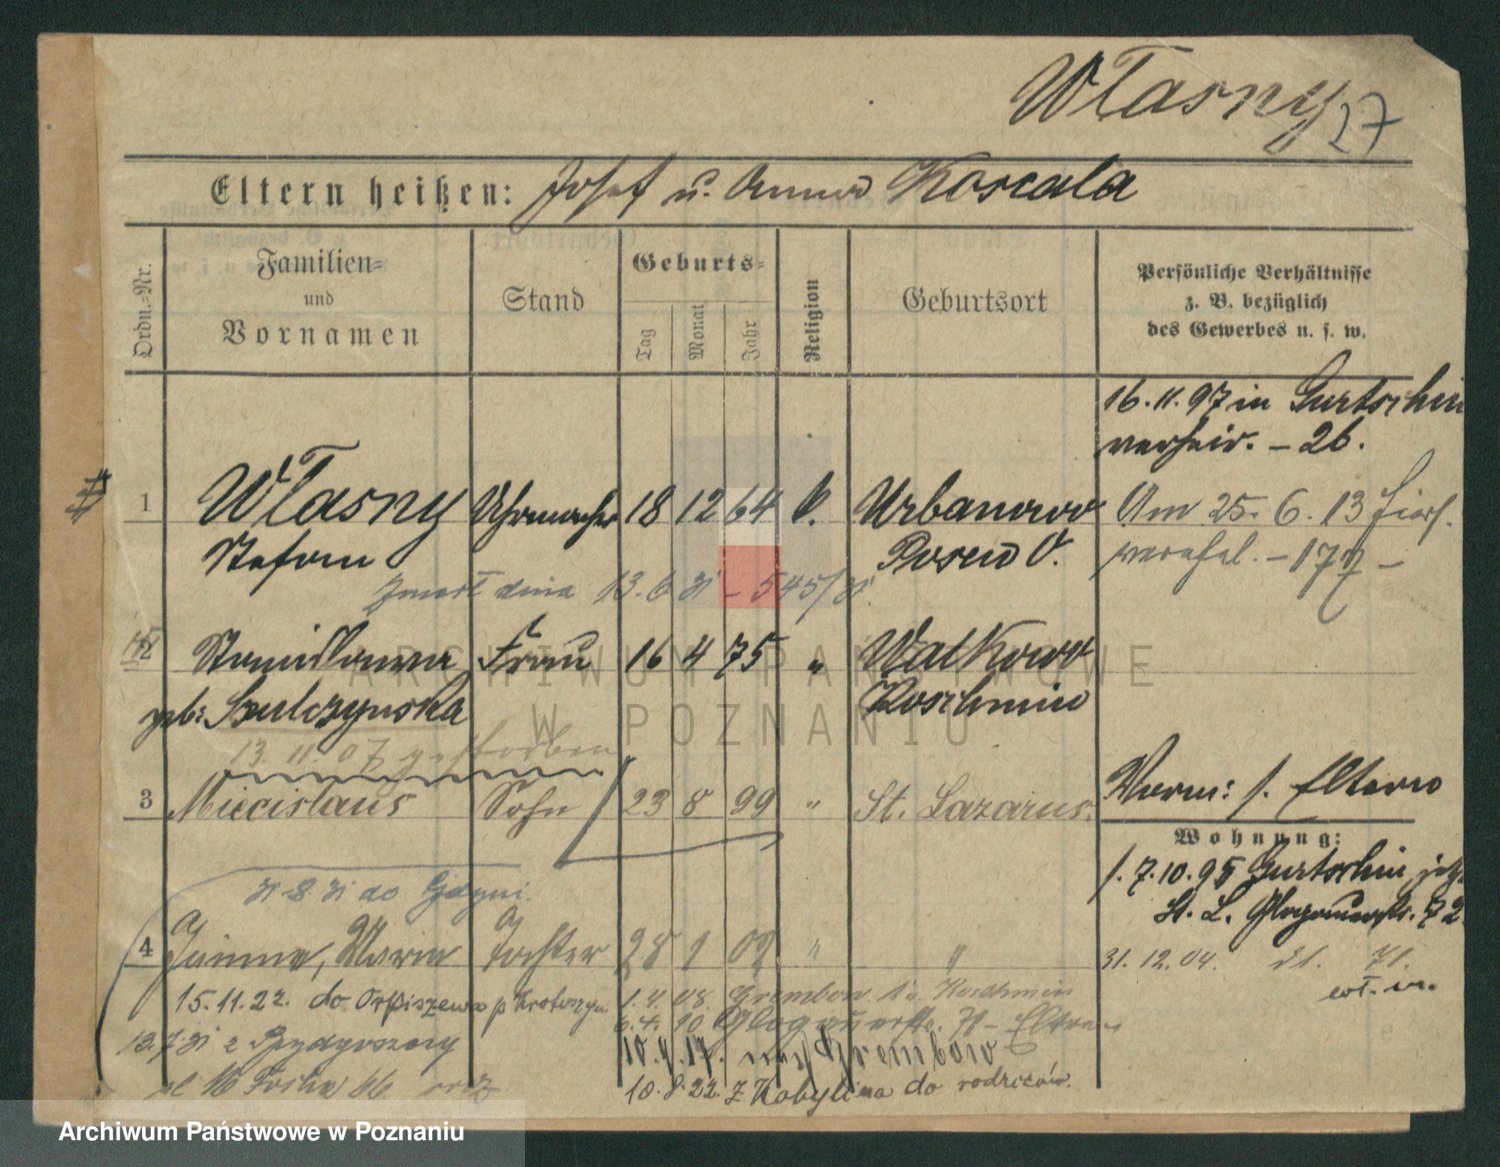 Własny 27
Eltern heißen: Josef u. Anna Koscala
Ordn.=Nr.
Familien=
und
Vornamen
Stand
Geburts=
Tag
Monat
Jahr
Religion
Geburtsort
Persönliche Verhältnisse
z. B. bezüglich
des Gewerbes u. s. w.
16.11.97 in Gurtschin
verheir. – 26.
1 Własny Uhrmacher 18 12 64 k. Urbanowo
Stefan Posen O.
Am 25.6.13
– 177 –
zmarł dnia 13.6.31 – 545/31
2 Stanislawa Frau 16 4 75 " Walkowo
geb: Szulczynska Koschmin
13.11.07 gestorben
3 Miecislaus Sohn 23 8 99 " St. Lazarus.
Vorm: s. Eltern
Wohnung:
1.7.10.95 Gurtschin jetzt
St. L. Glogauerstr. 72
31.12.04. 71.
31.8.31 do Gdyni.
4 Janina, Maria Tochter 28 9 02 " "
15.11.22. do Orpiszewo p Krotoszyn
1.4.08. Grembow Koschmin
6.4.10 Glogauerstr. 71 – Eltern
13.7.31 z Bydgoszczy
10.9.17. nach Grembow
10.8.22 z Kobylina do rodziców.
ARCHIWUM PAŃSTWOWE
W POZNANIU
Archiwum Państwowe w Poznaniu